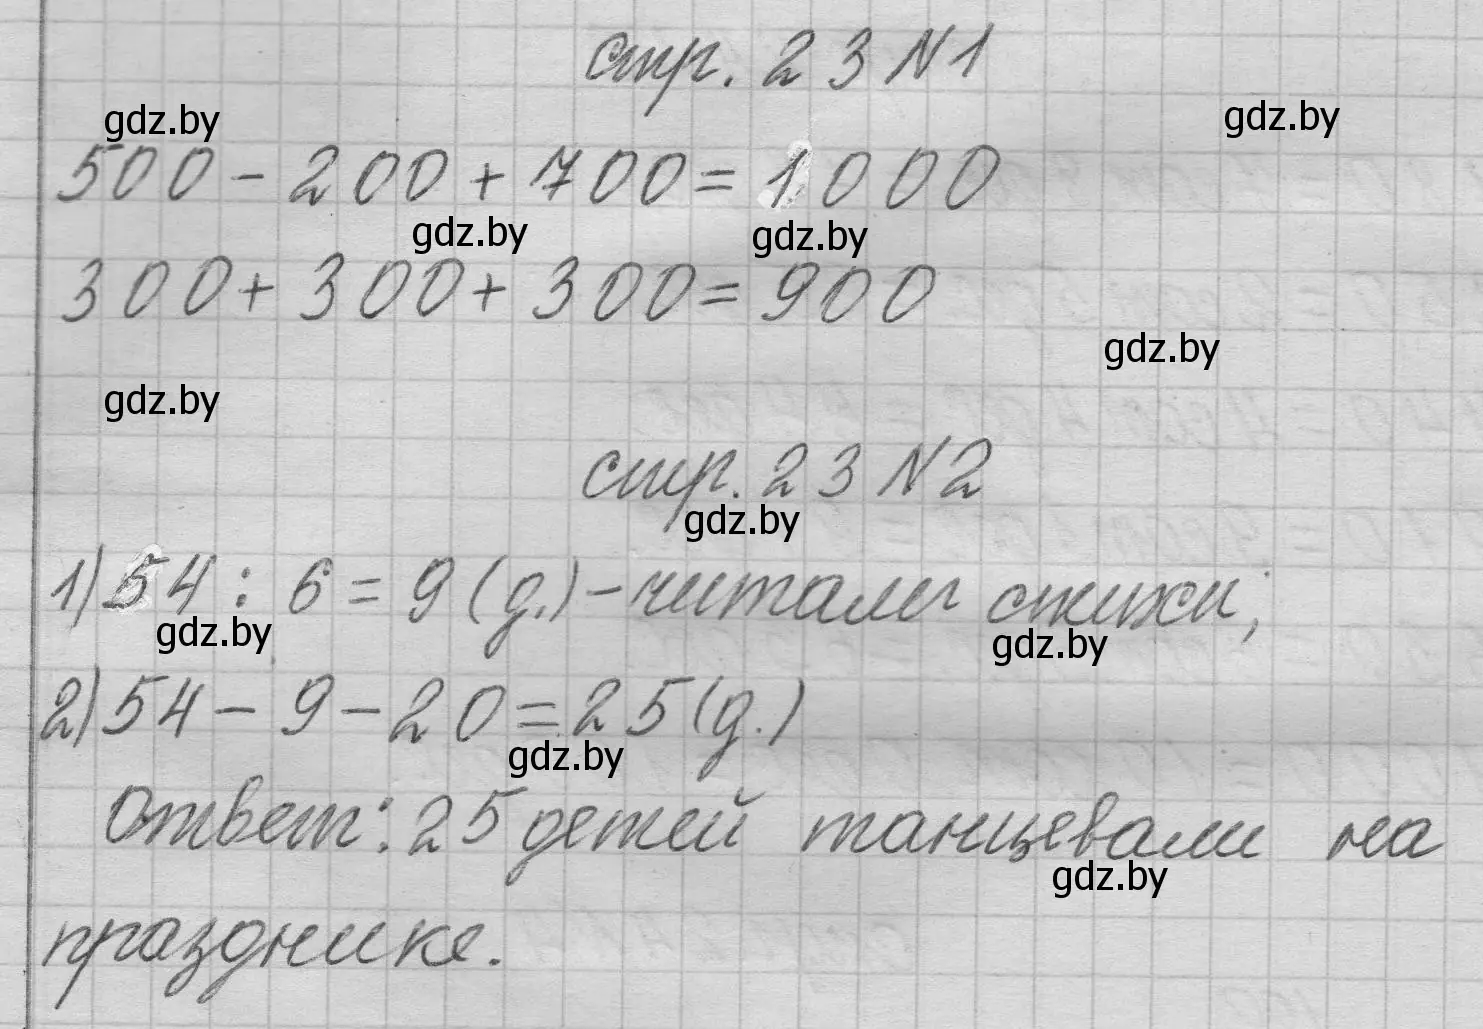 стр. 23 N1
gdz.by
gdz.by
500 - 200 + 700 = 1000
gdz.by
gdz.by
300 + 300 + 300 = 900
gdz.by
gdz.by
стр. 23 N2
gdz.by
1) 54 : 6 = 9 (д.) - читали стихи;
gdz.by
gdz.by
2) 54 - 9 - 20 = 25 (д.)
gdz.by
Ответ: 25 детей танцевали на
gdz.by
празднике.